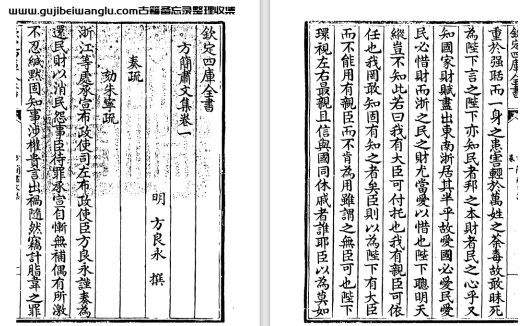 www.gujibeiwanglu.com古籍备忘录整理收集
欽定四庫全書
方簡肅文集卷一
明 方良永 撰
奏疏
劾朱寧疏
浙江等處承宣布政使司左布政使臣方良永謹奏為
還民財以消民怨事臣待罪承宣自慚無補偶有所激
不忍緘默固知事涉權貴言出禍隨然竊計脂韋之罪
重於強聒而一身之患害輕於萬姓之荼毒故敢昧死
為陛下言之陛下亦知民者邦之本財者民之心乎又
知國家財賦盡出東南浙居其半乎故愛國必愛民愛
民必惜財而浙之民之財尤當愛以惜也陛下聰明天
縱豈不知此若曰我有大臣可付托也我有親臣可依
任也我罔敢知固有知之者矣臣則以為陛下有大臣
而不能用有親臣而不肯為用雖謂之無臣可也陛下
環視左右最親且信與國同休戚者誰耶臣以為莫如
欽定四庫全書